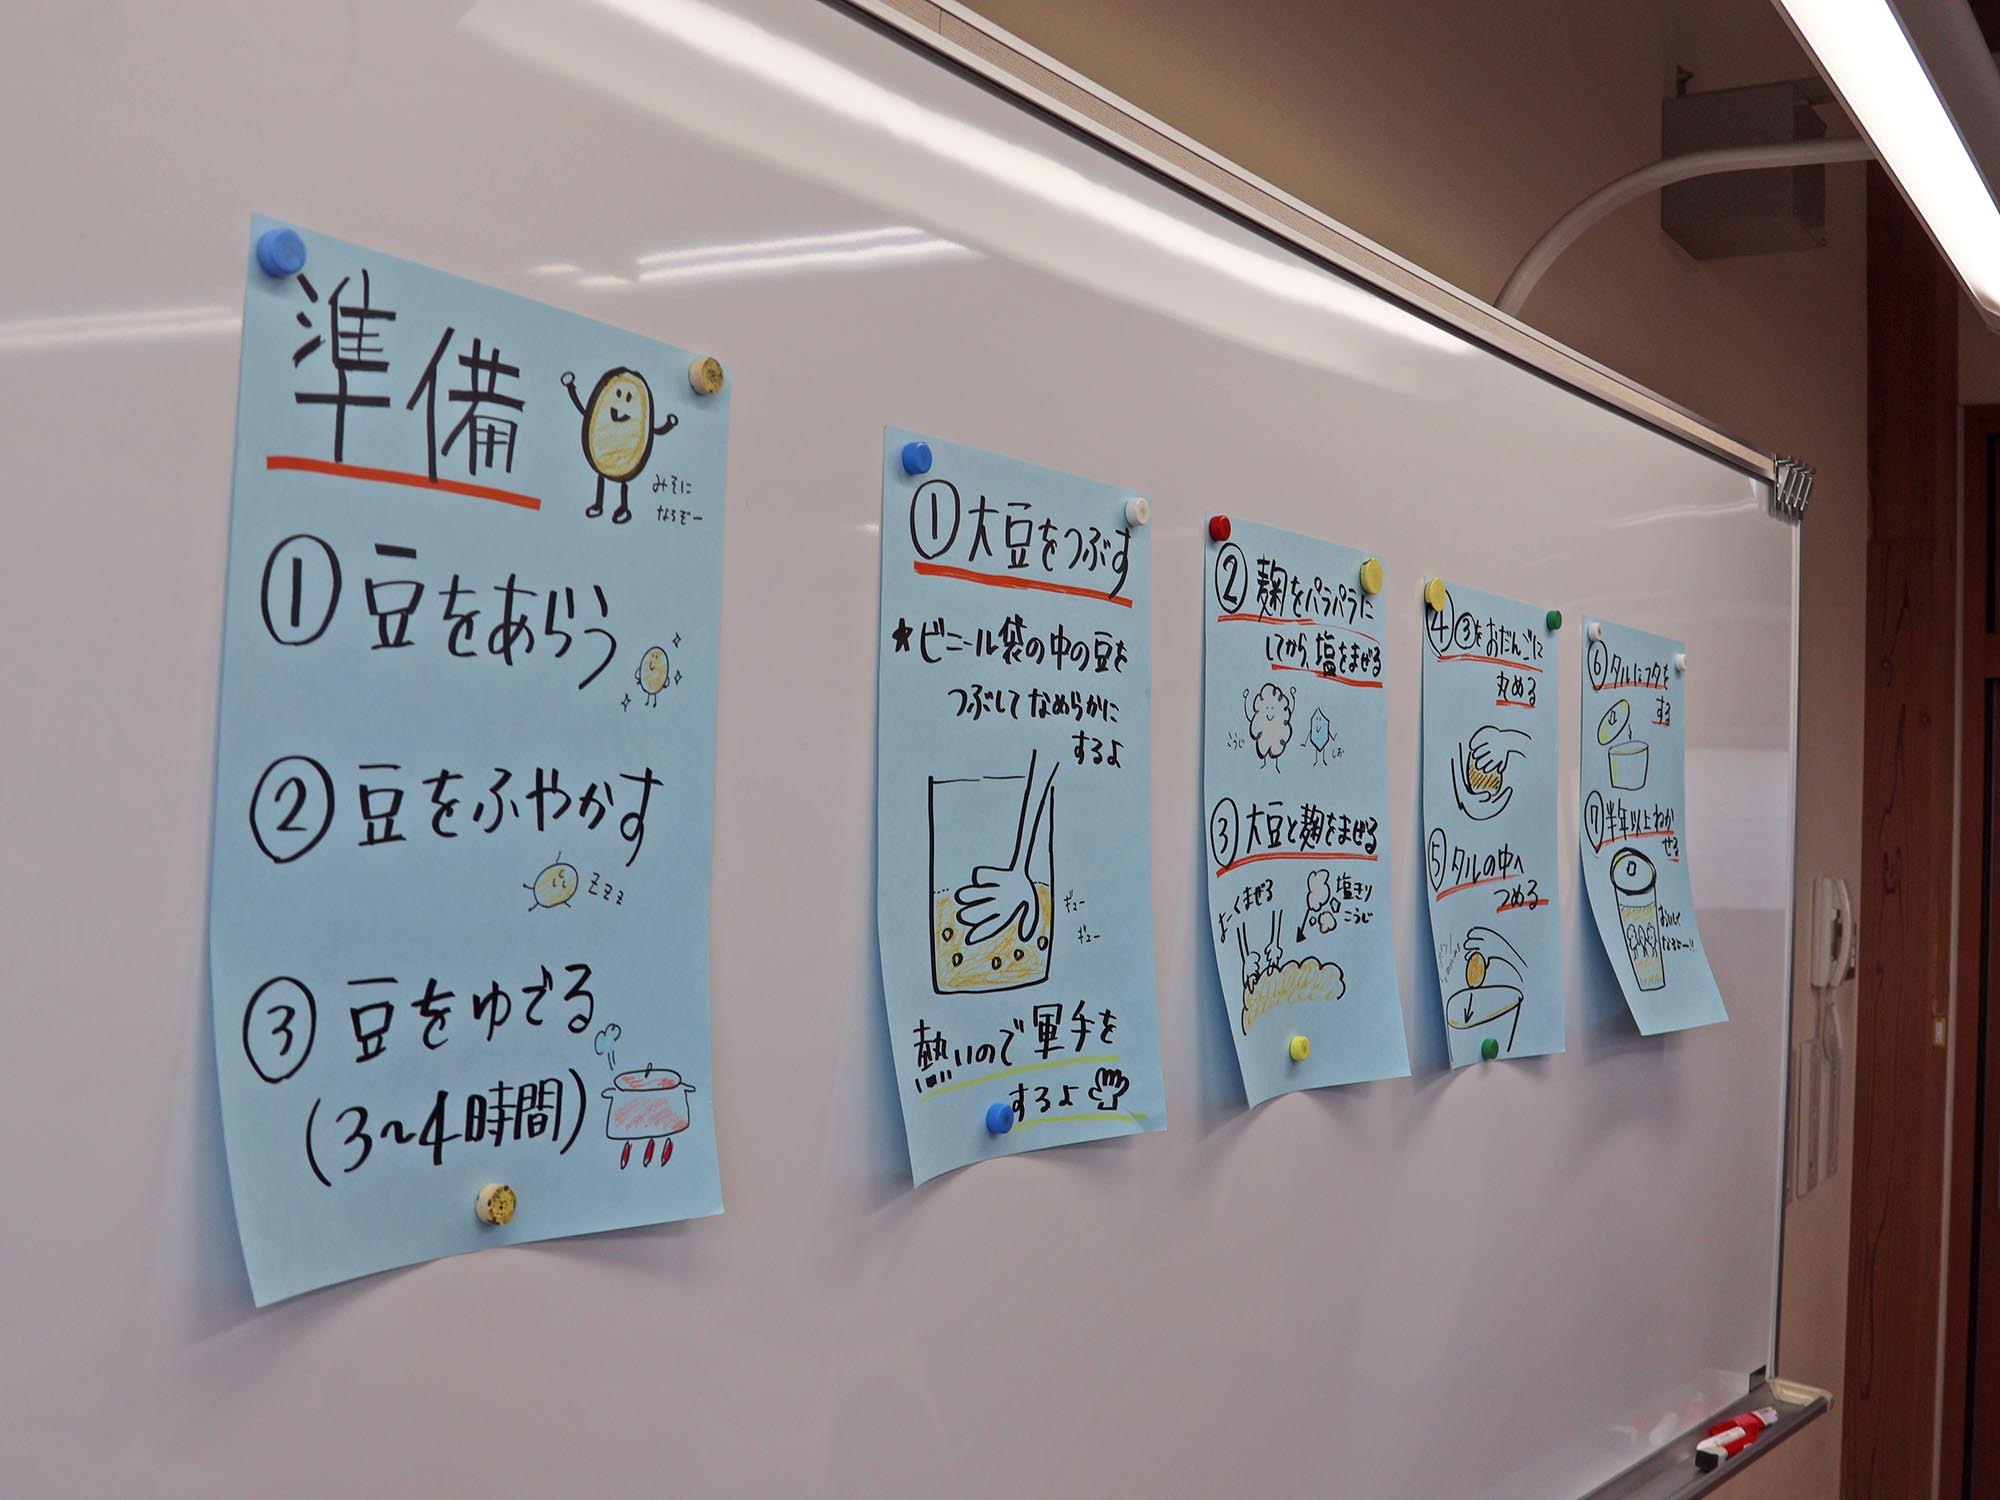 準備
みそに
なるぞー
① 豆をあらう
② 豆をふやかす
zzz
③ 豆をゆでる
(3〜4時間)
① 大豆をつぶす
★ビニール袋の中の豆を
つぶしてなめらかに
するよ
ギュー
ギュー
熱いので軍手を
するよ
② 麹をパラパラに
してから、塩をまぜる
こうじ
しお
③ 大豆と麹をまぜる
よーくまぜる
塩きり
こうじ
④ ③をおだんごに
丸める
⑤ タルの中へ
つめる
⑥ タルにフタを
する
⑦ 半年以上ねか
せる
おいしく
なるよー!!